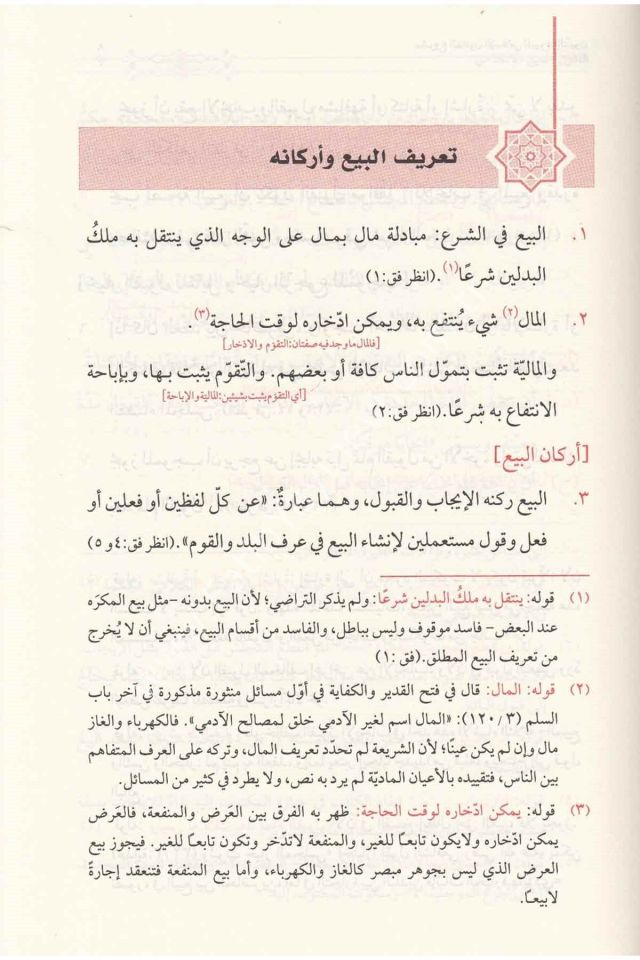 تعريف البيع وأركانه
١. البيع في الشرع: مبادلة مال بمال على الوجه الذي ينتقل به ملكُ
البدلين شرعًا(١).(انظر فق:١)
٢. المال(٢) شيء يُنتفع به، ويمكن ادّخاره لوقت الحاجة(٣).
[فالمال ما وجد فيه صفتان: التقوّم والادّخار]
والماليّة تثبت بتموّل الناس كافة أو بعضهم. والتّقوّم يثبت بها، وبإباحة
[أي التقوّم يثبت بشيئين: المالية والإباحة]
الانتفاع به شرعًا.(انظر فق:٢)
[أركان البيع]
٣. البيع ركنه الإيجاب والقبول، وهما عبارةٌ: «عن كلّ لفظين أو فعلين أو
فعل وقول مستعملين لإنشاء البيع في عرف البلد والقوم».(انظر فق:٤ و ٥)
(١) قوله: ينتقل به ملكُ البدلين شرعًا: ولم يذكر التراضي؛ لأن البيع بدونه –مثل بيع المكرَه
عند البعض– فاسد موقوف وليس بباطل، والفاسد من أقسام البيع، فينبغي أن لا يُخرج
من تعريف البيع المطلق.(فق:١)
(٢) قوله: المال: قال في فتح القدير والكفاية في أوّل مسائل منثورة مذكورة في آخر باب
السلم (٣/ ١٢٠): «المال اسم لغير الآدمي خلق لمصالح الآدمي». فالكهرباء والغاز
مال وإن لم يكن عينًا؛ لأن الشريعة لم تحدّد تعريف المال، وتركه على العرف المتفاهم
بين الناس، فتقييده بالأعيان الماديّة لم يرد به نص، ولا يطرد في كثير من المسائل.
(٣) قوله: يمكن ادّخاره لوقت الحاجة: ظهر به الفرق بين العَرض والمنفعة، فالعَرض
يمكن ادّخاره ولايكون تابعًا للغير، والمنفعة لاتدّخر وتكون تابعًا للغير. فيجوز بيع
العرض الذي ليس بجوهر مبصر كالغاز والكهرباء، وأما بيع المنفعة فتنعقد إجارةً
لابيعًا.